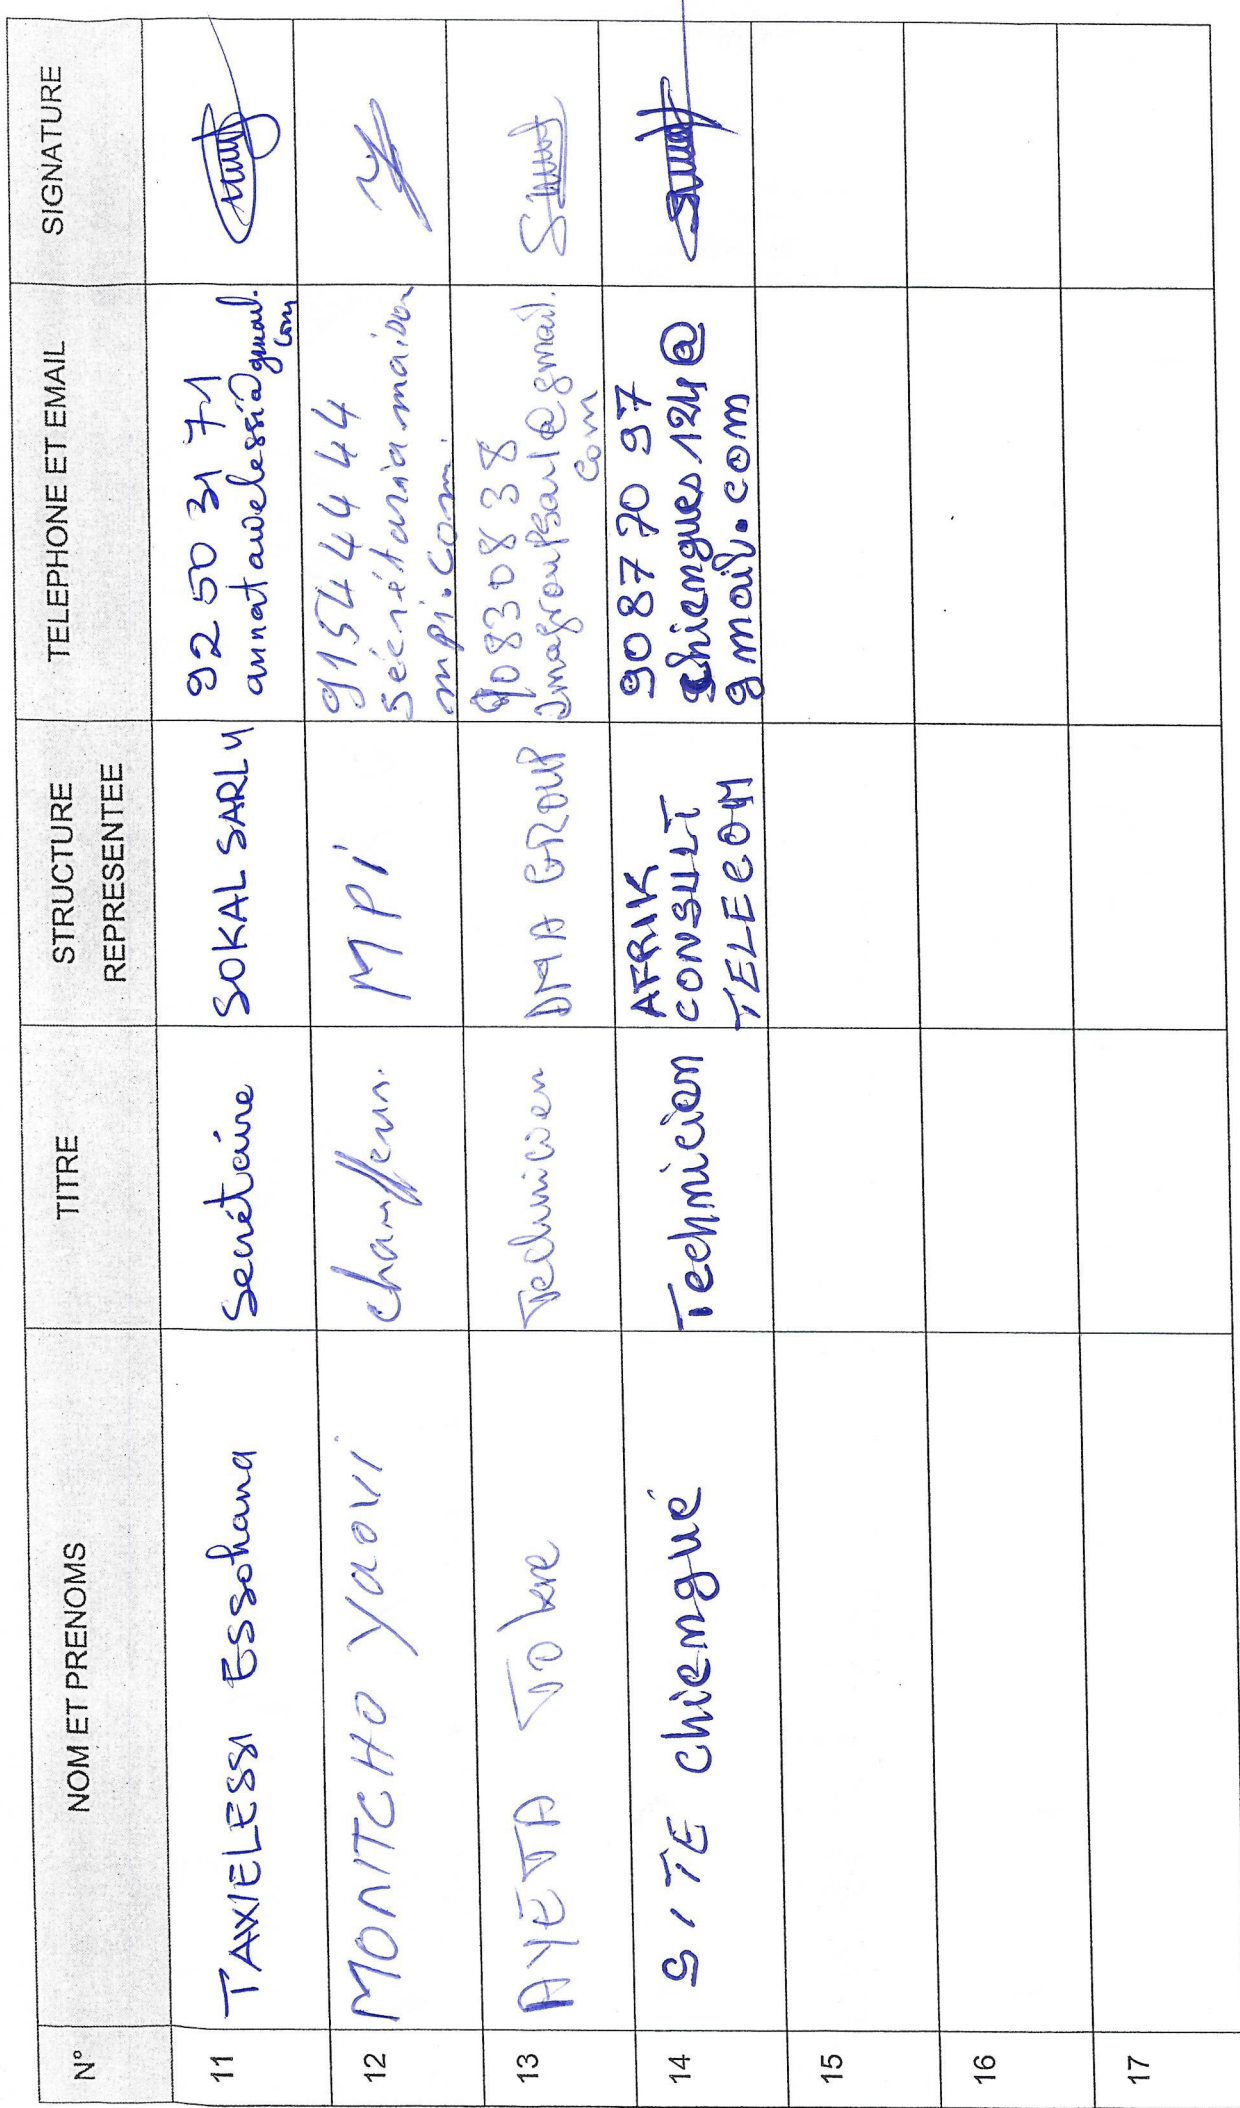 N° NOM ET PRENOMS TITRE STRUCTURE REPRESENTEE TELEPHONE ET EMAIL SIGNATURE
11 TAWELESSI ESSohana Secrétaire SOKAL SARLU 92 50 31 71
annatawelessi@gmail.
com
12 MONTCHO YAOVI chauffeur. MPI 91544444
sécrétariamaison
mpi.com
13 AYETA Tokre Technicien DMA GROUP 90830838
Dmagroupsarl@gmail.
com
14 SITE Chiengué Technicien AFRIK
CONSULT
TELECOM
9087 70 97
chiengues124@
gmail.com
15
16
17